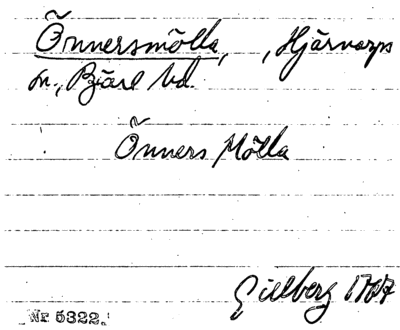 Önnersmölla, , Hjärnarps
sn, Bjäre hd
Önners Mölla
Gillberg 1767
Nr 5322.